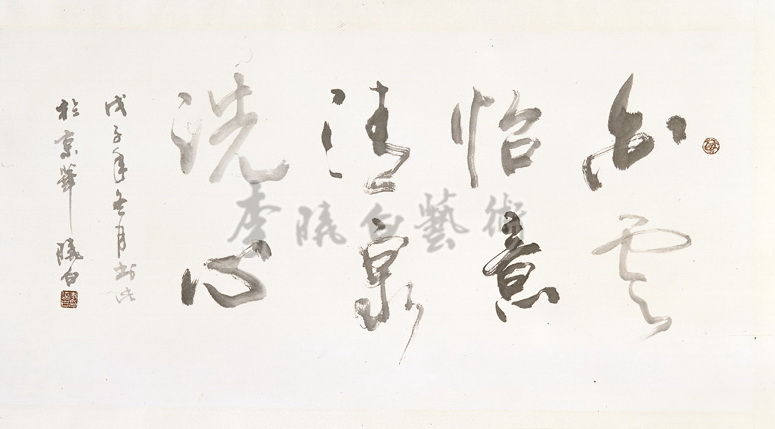 白雲
怡意
清泉
洗心
戊子年冬月书此
於京華 曉白
李曉白藝術